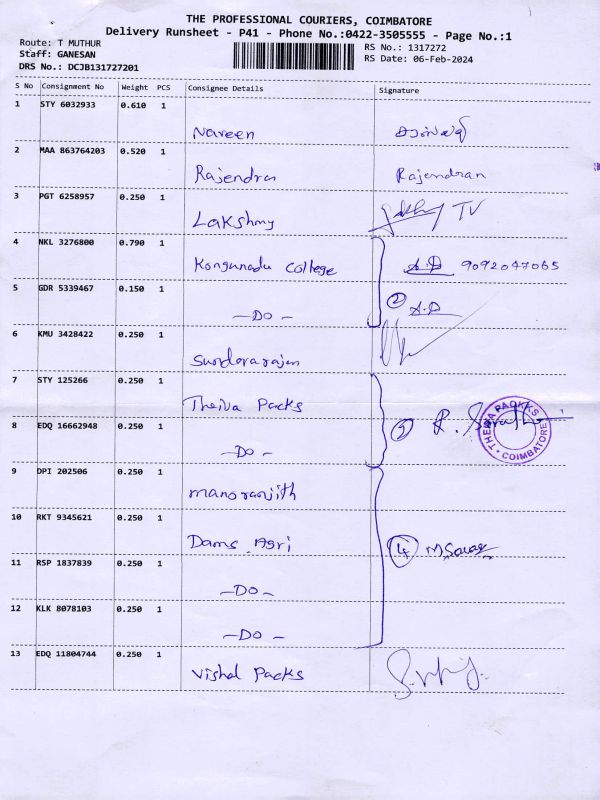 THE PROFESSIONAL COURIERS, COIMBATORE
Delivery Runsheet - P41 - Phone No.:0422-3505555 - Page No.:1
Route: T MUTHUR
RS No.: 1317272
Staff: GANESAN
RS Date: 06-Feb-2024
DRS No.: DCJB131727201
S No Consignment No Weight PCS Consignee Details Signature
1 STY 6032933 0.610 1
Naveen
2 MAA 863764203 0.520 1
Rajendran Rajendran
3 PGT 6258957 0.250 1
Lakshmy TV
4 NKL 3276800 0.790 1
Kongunadu College A.D 9092047065
5 GDR 5339467 0.150 1
-DO- 2 A.D
6 KMU 3428422 0.250 1
Sundararajan
7 STY 125266 0.250 1
Thaiva Packs
8 EDQ 16662948 0.250 1
THEIVA PACKKS COIMBATORE
-DO-
9 DPI 202506 0.250 1
manoranjith
10 RKT 9345621 0.250 1
Dams Agri 4
11 RSP 1837839 0.250 1
-DO-
12 KLK 8078103 0.250 1
-DO-
13 EDQ 11804744 0.250 1
Vishal Packs